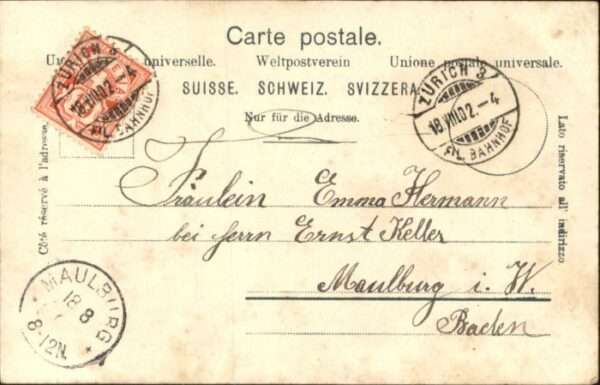 Carte postale.
Union postale universelle. Weltpostverein Unione postale universale.
SUISSE. SCHWEIZ. SVIZZERA
Nur für die Adresse.
Côté réservé à l'adresse.
Lato riservato all' indirizzo
ZÜRICH 3
18.VIII.02.-4
FIL. BAHNHOF
ZÜRICH 3
18.VIII.02.-4
FIL. BAHNHOF
Fräulein Emma Hermann
bei Herrn Ernst Keller
Maulburg i. W.
Baden
MAULBURG
18 8
8-12N.